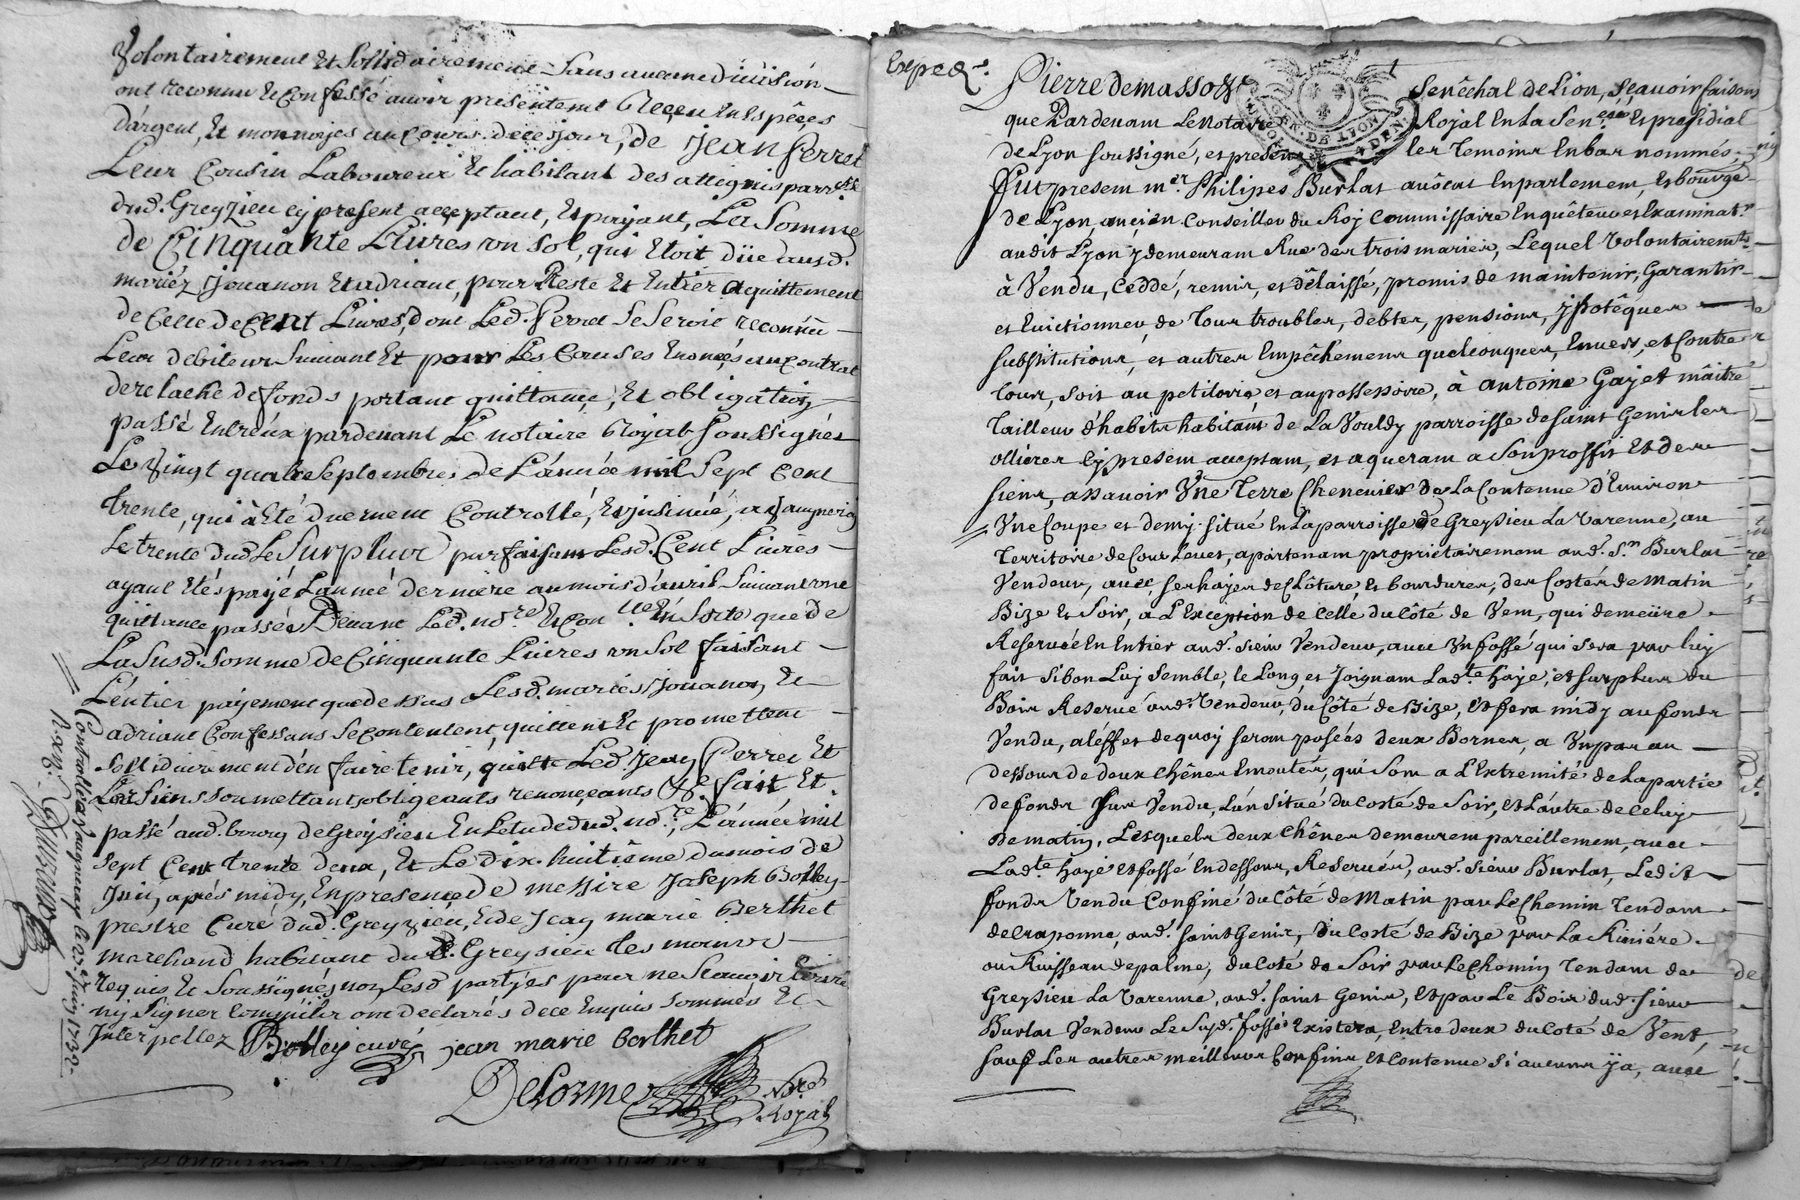 Volontairement et Sollidairement Sans aucune division
ont reconnu et Confessé avoir presentemt Reçeu en Espêçes
d'argent, et monnoyes au Cours de ce jour, de jean ferret
Leur Cousin Laboureur et habitant des attignis parr.sse
dud. Greyzieu cy present acçeptant, et payant, La Somme
de Cinquante Livres un sol, qui Etoit düe ausd.
mariéz Jouanon et adriane, pour Reste et Entier aquittement
de Celle de Cent Livres, dont Led. ferret Se Seroit reconnû
Leur debiteur Suivant Et pour Les Causes Enonçés au Contrat
de relache de fonds portant quittançe, et obligâtion
passé Entr'eux pardevant Le notaire Royal Soussignés
Le Vingt quatre Septembre de L'année mil Sept Cent
trente, qui à Eté duement Controllé, et insinué, a Saugneriy
Le trente dud. Le Surplus parfaisant Lesd. Cent Livres
ayant Etés payé L'année derniere au mois d'avril Suivant une
quittance passée Devant Led. no.re et Con.llée En Sorte que de
La Susd. Somme de Cinquante Livres un Sol faisant
L'entier payement que dessus Lesd. mariés Jouanon, et
adriane Confessans Se Contentent, quittent et promettent
Sollidairement d'en faire tenir, quitte Led. Jean Ferret Et
Les Siens Soumettants obligeants renonçeants &c fait Et
passé aud. bourg de Greysieu En L'etude dud. no.re L'année mil
sept Cent trente deux, Et Le dix-huitiême du mois de
Juin, aprés midy, En presence de messire Joseph Bolley
prestre Curé dud. Greyzieu, Et de Jean marie Berthet
marchand habitant dud. Greysieu tesmoins
requis et Soussignés non Lesd parties pour ne Scavoir Ecrire
ny Signer Comm'ils ont declarés de ce Enquis Sommés Et
Interpellez Bolley curé jean marie berthet
Delorme No.re
Royal
Controllé a Saugneray le 22e Juin 1732.
R. xii s.
Expéd.e
Pierre de masso Senêchal de Lion, sçavoir faisons
que Pardevant Le Notaire Royal En La Sen.ée Et presidial
de Lyon soussigné, et present les Temoins En bas nommés,
fut present m.er Philipes Burlat avôcat En parlement, Et bourge
de Lyon, ancien Conseiller du Roy Commissaire Enquêteur et Examinat.r
audit Lyon y demeurant Rue des trois maries, Lequel Volontairem.t
à Vendu, Ceddé, remis, et dêlaissé, promis de maintenir, Garantir
et Evictionner de Tous troubles, debtes, pensions, ypotêques
substitutions, et autres Empêchemens quelconques, Envers, et Contre
tous, soit au petitoire et au possessoire, à antoine Gayet mâitre
Tailleur d'habits habitant de La Vouldy parroisse de saint Genis les
ollieres cy present acceptant, et aquerant a son proffit Et des
siens, assavoir Une Terre Cheneviere de La Contenue d'Environ
Une Coupe et demy situé En La parroisse de Greysieu La Varenne, au
Territoire de Cour Louet, apartenant proprietairement aud. S.r Burlat
Vendeur, avec ses hayes de Clôture, Et bordures, des Costés de Matin
Bize Et Soir, a L'Exception de Celle du Côté de Vent, qui demeure
Reservé En Entier aud. sieur Vendeur, avec Un fossé qui sera par luy
fait si bon Luy semble, le Long et Joignant Lad.te haye, et surplus du
Bois Reservé aud. Vendeur, du Côté de Bize, Et fera midy au fonds
Vendu, a l'effet de quoy seront posées deux Bornes, a Un pas au
dessous de deux chênes Emoutés, qui Sont a L'Extremité de La partie
de fonds sus Vendu, L'un situé du Costé de Soir, Et L'autre de Celuy
de matin, Lesquels deux Chênes demeurent pareillement, avec
Lad.te haye et fossé En dessous, Reservés, aud. sieur Burlat, Ledit
fonds Vendu Confiné du Côté de Matin par Le Chemin Tendant
de Craponne, aud. saint Genis, du Costé de Bize par La Riviére
ou Ruisseau de palme, du Coté de Soir par Le Chemin Tendant de
Greysieu La Varenne, aud. saint Genis, Et par Le Bois dud. sieur
Burlat Vendeur Le Susd. fossé Existera, Entre deux du Coté de Vent,
sauf Les autres meilleurs Confins Et Contenue si aucuns y a, avec